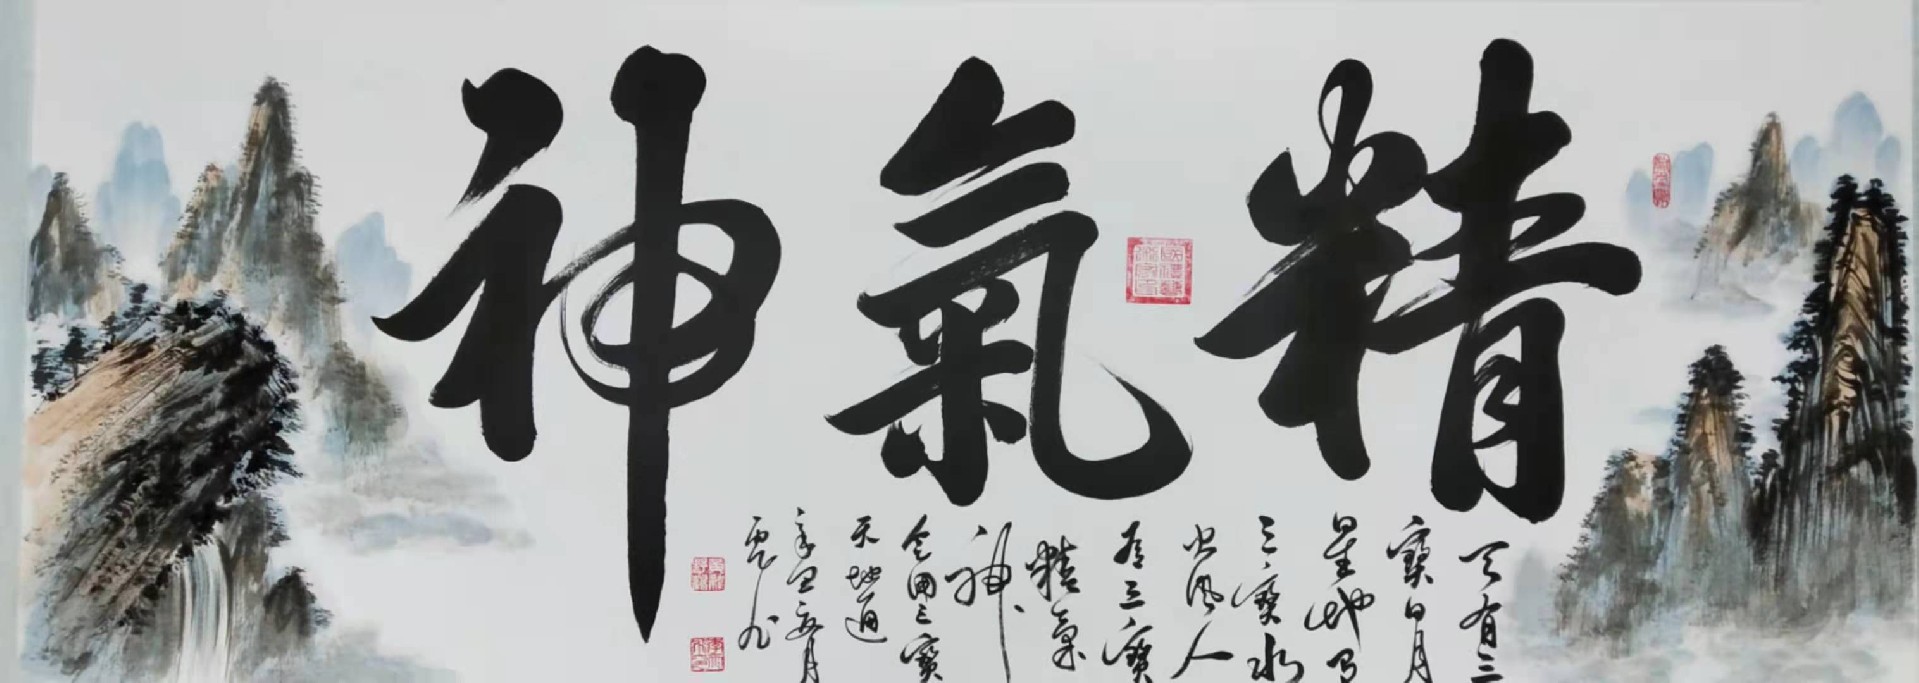 精氣神
天有三
寶日月
星地有
三寶水
火風人
有三寶
精氣
神
会用三寶
天地通
辛丑月